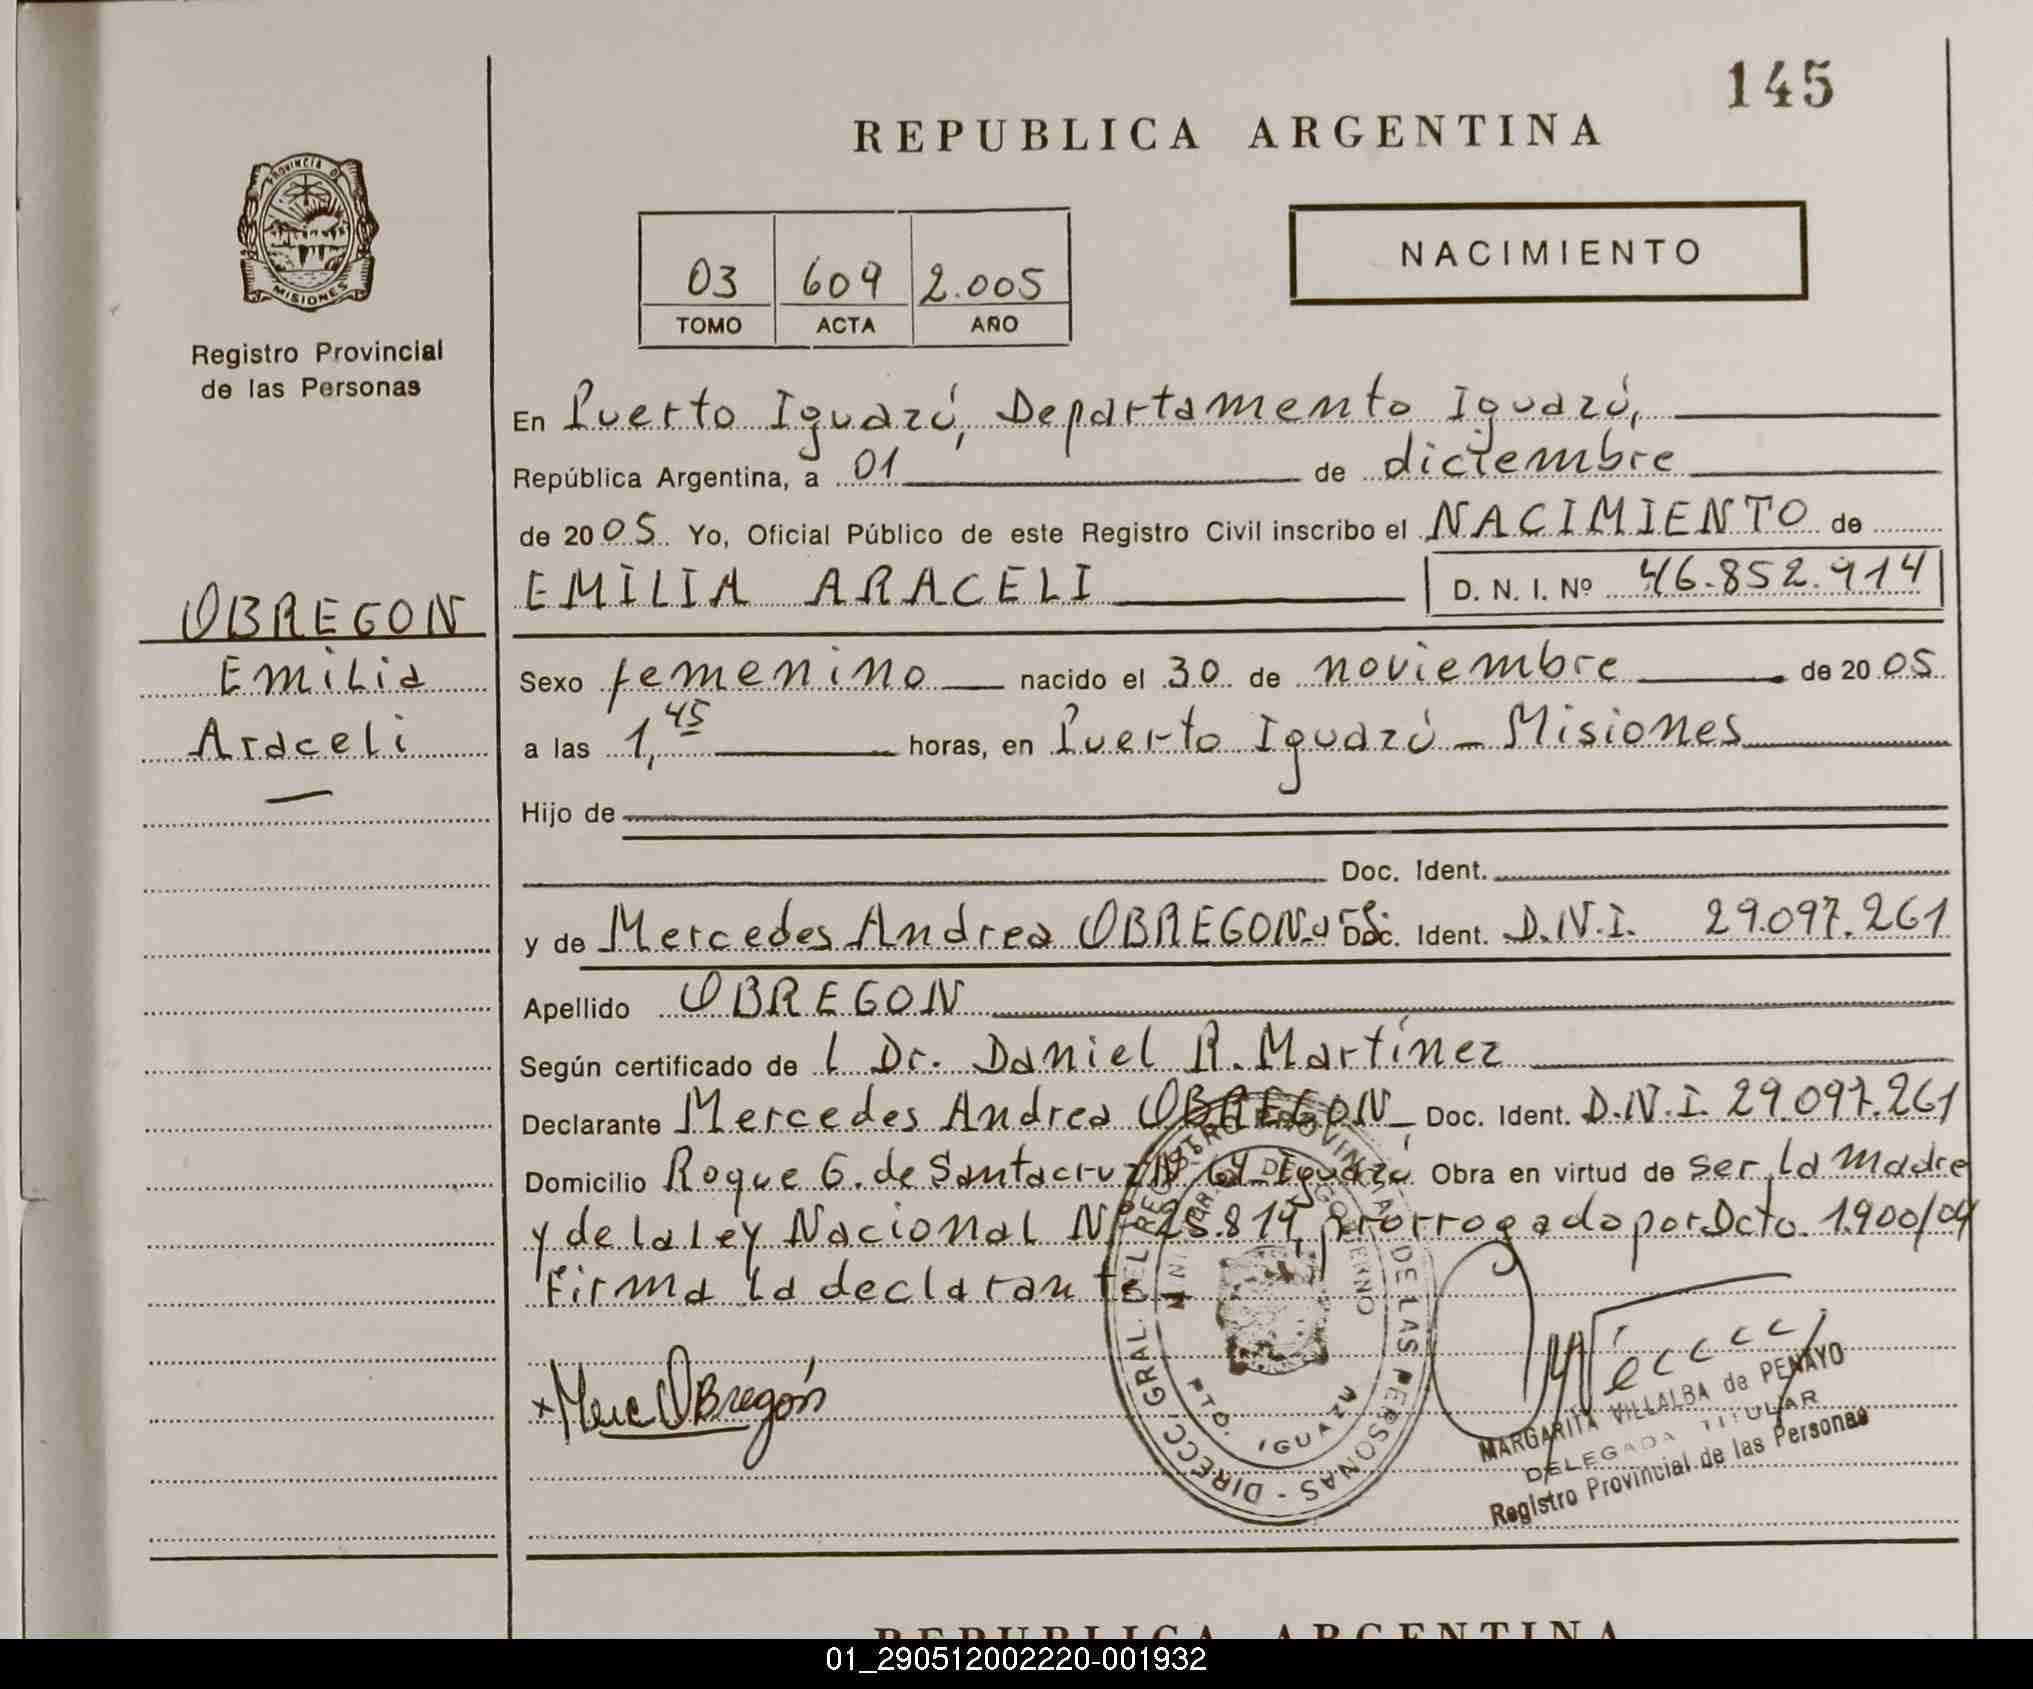 145
REPUBLICA ARGENTINA
PROVINCIA DE
MISIONES
Registro Provincial
de las Personas
03 609 2.005
TOMO ACTA AÑO
NACIMIENTO
En Puerto Iguazú, Departamento Iguazú,
República Argentina, a 01 de diciembre
de 2005 Yo, Oficial Público de este Registro Civil inscribo el NACIMIENTO de
EMILIA ARACELI D. N. I. Nº 46.852.914
OBREGON
Emilia
Araceli
Sexo femenino nacido el 30 de noviembre de 2005
a las 1,45 horas, en Puerto Iguazú - Misiones
Hijo de
Doc. Ident.
y de Mercedes Andrea OBREGON Doc. Ident. D.N.I. 29.097.261
Apellido OBREGON
Según certificado de l Dr. Daniel R. Martínez
Declarante Mercedes Andrea OBREGON Doc. Ident. D.N.I. 29.097.261
Domicilio Roque G. de Santacruz Iguazú Obra en virtud de ser la madre
y de la ley Nacional Nº 25.819, prorrogado por Dcto. 1.900/04
Firma la declarante
x Merc Obregón
DIRECC. GRAL. DEL REGISTRO PROVINCIAL DE LAS PERSONAS -
PTO. IGUAZU
MARGARITA VILLALBA de PENAYO
DELEGADA TITULAR
Registro Provincial de las Personas
REPUBLICA ARGENTINA
01_290512002220-001932